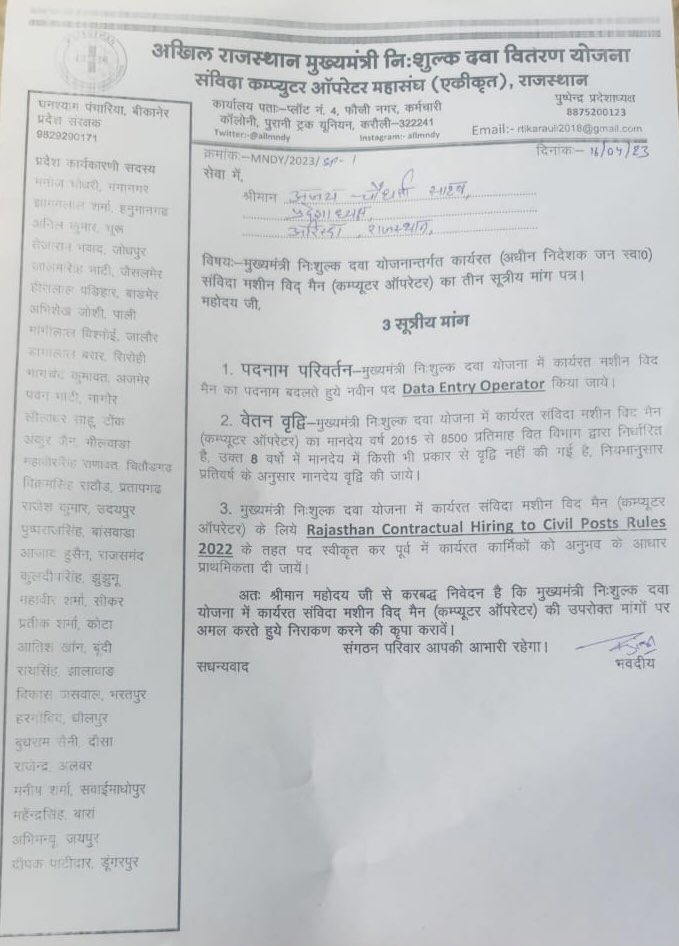 अखिल राजस्थान मुख्यमंत्री निःशुल्क दवा वितरण योजना
संविदा कम्प्युटर ऑपरेटर महासंघ (एकीकृत), राजस्थान
कार्यालय पताः–प्लॉट नं. 4, फौजी नगर, कर्मचारी
कॉलोनी, पुरानी ट्रक यूनियन, करौली–322241
Twitter:-@allmndy Instagram:- allmndy
पुष्पेन्द्र प्रदेशाध्यक्ष
8875200123
Email:- rtikarauli2018@gmail.com
घनश्याम पंचारिया, बीकानेर
प्रदेश संरक्षक
9829290171
प्रदेश कार्यकारणी सदस्य
मनोज चौधरी, गंगानगर
शर्मा, हनुमानगढ
अनिल कुमार, चूरू
जोधपुर
जालमसिंह भाटी, जैसलमेर
पडिहार, बाडमेर
अभिशेख जोशी, पाली
मांगीलाल विश्नोई, जालौर
सिरोही
कुमावत, अजमेर
पवन भाटी, नागौर
लीलाधर साहू, टोंक
जैन, भीलवाडा
महावीरसिंह राणावत, चितौडगढ
विक्रमसिंह राठौड, प्रतापगढ
राजेश कुमार, उदयपुर
पुष्पराजसिंह, बांसवाडा
आजाद हुसैन, राजसमंद
कुलदीपसिंह, झुंझुनू
महावीर शर्मा, सीकर
प्रतीक शर्मा, कोटा
आतिश खॉन, बूंदी
रायसिंह, झालावाड
विकास जसवाल, भरतपुर
हरगोविंद, धौलपुर
बुधराम सैनी, दौसा
राजेन्द्र, अलवर
मनीष शर्मा, सवाईमाधोपुर
महेन्द्रसिंह, बारां
अभिमन्यू, जयपुर
दीपक पाटीदार, डूंगरपुर
क्रमांकः–MNDY/2023/SP-1
दिनांकः– 16/04/23
सेवा में,
श्रीमान अजय चौधरी साहब,
प्रदेशाध्यक्ष
अरिस्दा, राजस्थान,
विषयः–मुख्यमंत्री निःशुल्क दवा योजनान्तर्गत कार्यरत (अधीन निदेशक जन स्वा0)
संविदा मशीन विद् मैन (कम्प्यूटर ऑपरेटर) का तीन सूत्रीय मांग पत्र।
महोदय जी,
3 सूत्रीय मांग
1. पदनाम परिवर्तन–मुख्यमंत्री निःशुल्क दवा योजना में कार्यरत मशीन विद
मैन का पदनाम बदलते हुये नवीन पद Data Entry Operator किया जाये।
2. वेतन वृद्वि–मुख्यमंत्री निःशुल्क दवा योजना में कार्यरत संविदा मशीन विद मैन
(कम्प्यूटर ऑपरेटर) का मानदेय वर्ष 2015 से 8500 प्रतिमाह वित विभाग द्वारा निर्धारित
है, उक्त 8 वर्षो में मानदेय में किसी भी प्रकार से वृद्वि नहीं की गई है, नियमानुसार
प्रतिवर्ष के अनुसार मानदेय वृद्वि की जाये।
3. मुख्यमंत्री निःशुल्क दवा योजना में कार्यरत संविदा मशीन विद मैन (कम्प्यूटर
ऑपरेटर) के लिये Rajasthan Contractual Hiring to Civil Posts Rules
2022 के तहत पद स्वीकृत कर पूर्व में कार्यरत कार्मिकों को अनुभव के आधार
प्राथमिकता दी जायें।
अतः श्रीमान महोदय जी से करबद्ध निवेदन है कि मुख्यमंत्री निःशुल्क दवा
योजना में कार्यरत संविदा मशीन विद् मैन (कम्प्यूटर ऑपरेटर) की उपरोक्त मांगों पर
अमल करते हुये निराकण करने की कृपा करावें।
संगठन परिवार आपकी आभारी रहेगा।
सधन्यवाद
भवदीय